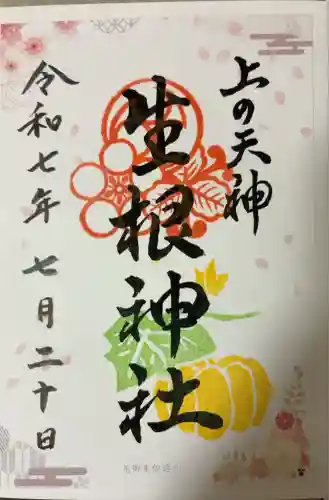 上の天神
生根神社
令和七年七月二十日